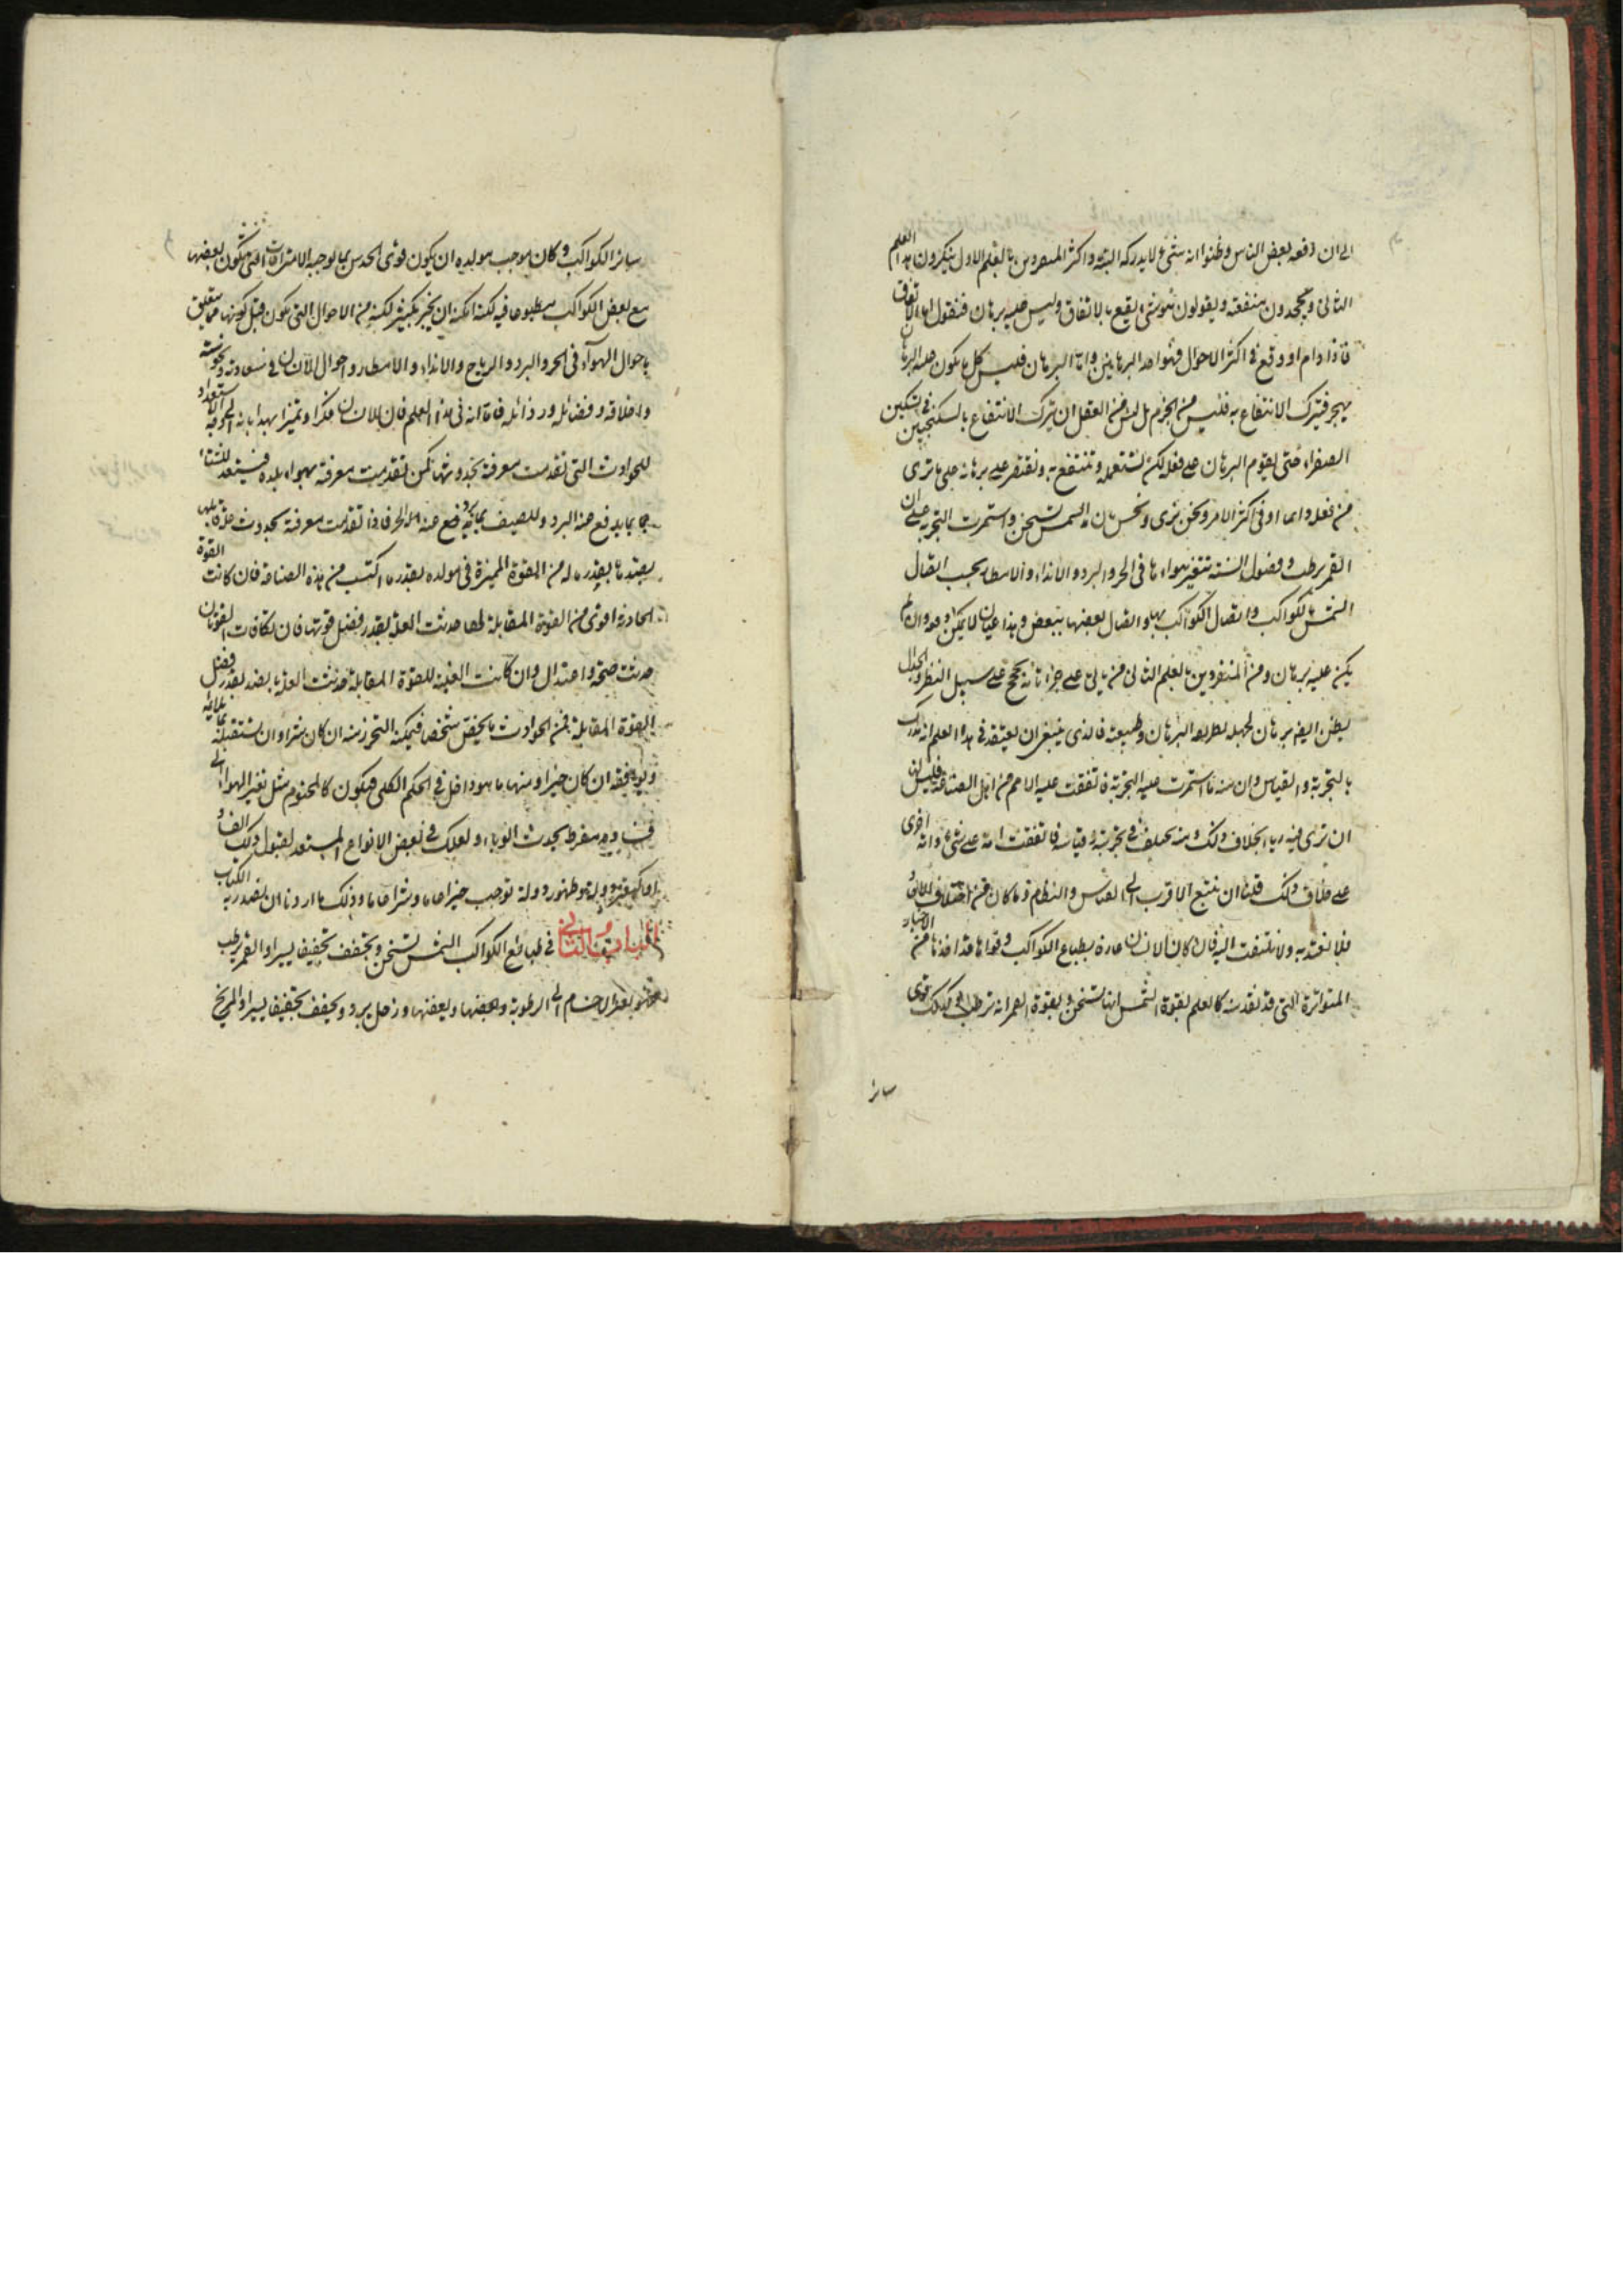 الى ان دفعه بعض الناس وظنوا انه شىء لا يدركه البته واكثر المتفردين بالعلم الاول ينكرون هذا العلم
الثانى ويجحدون منفعته ويقولون هو شىء يقع بالاتفاق وليس عليه برهان فنقول اما الاتفاق
فاذا دام او وقع فى اكثر الاحوال فهو احد البرهانين واما البرهان فليس كل ما يكون عليه البرهان
يهجر فيترك الانتفاع به فليس من الحزم بل ليس من العقل ان يترك الانتفاع بالسكنجبين فى تسكين
الصفراء حتى يقوم البرهان على فعله لكن نستعمله وننتفع به ونقتصر على برهانه على ما نرى
من فعله دائما او فى اكثر الامر ونحن نرى ونحس بان الشمس تسخن واستمرت التجربة على ان
القمر يرطب وفصول السنة تتغير هواءها فى الحر والبرد والانداء والامطار بحسب اتصال
الشمس بالكواكب واتصال الكواكب بها واتصال بعضها ببعض وهذا عيان لا يمكن دفعه وان لم
يكن عليه برهان ومن المتفردين بالعلم الثانى من ياتى على جزئياته بحجج على سبيل النظر والجدل
يظن انها برهان لجهله بطريق البرهان وطبيعته فالذى ينبغى ان يعتقد فى هذا العلم انه يدرك
بالتجربة والقياس وان منه ما استمرت عليه التجربة فاتفقت عليه الامم من اهل الصناعة فليس لنا
ان نرى فيه رأيا بخلاف ذلك ومنه مختلف فى تجربته وقياسه فاتفقت امة على شىء وامة اخرى
على خلاف ذلك فلنا ان نتبع الاقرب الى القياس والنظام وما كان من اختلاف الآحاد
فلا نعتد به ولا نلتفت اليه فان كان الانسان عارفا بطبائع الكواكب وقواها قد اخذها من الاخبار
المتواترة التى قد تقدمته كالعلم بقوة الشمس انها تسخن وبقوة القمر انه ترطب وكذلك قوى
سائر
سائر الكواكب وكان موجب مولده ان يكون قوى الحدس بما يوجبه الامتزاجات التى تكون لبعضها
مع بعض الكواكب مطبوعا فيه لكنه امكنه ان يخبر بكثير لكنه من الاحوال التى تكون قبل كونها مما يتعلق
باحوال الهواء فى الحر والبرد والرياح والانداء والامطار واحوال الانسان فى سعادته ونحوسته
واخلاقه وفضائله ورذائله فاما انه فى هذا العلم فان للانسان فكرا وتمييزا يهدى به الى الاستعداد
للحوادث التى تقدمت معرفة بحدوثها كمن تقدمت معرفة بهواء بلده فيستعد للشتاء
بما يدفع عنه البرد وللصيف بما يدفع عنه الحر فاذا تقدمت معرفة بحدوث علة قابلها
بضدها بقدر ما له من القوة المميزة فى مولده بقدر ما اكتسب من هذه الصناعة فان كانت القوة
الحادثة اقوى من القوة المقابلة لها حدثت العلة بقدر فضل قوتها فان تكافأت القوتان
حدثت صحة واعتدال وان كانت الغلبة للقوة المقابلة حدثت العلة بالضد بقدر فضل
القوة المقابلة فمن الحوادث ما يخص شخصا فيمكنه التحرز منه ان كان شرا وان يستقبله بما يلائمه
ويوافقه ان كان خيرا ومنها ما هو داخل فى الحكم الكلى فيكون كالمحتوم مثل تغير الهواء الى
فساد مفرط يحدث الوباء ولهلك فى بعض الانواع المستعد لقبول ذلك الفساد
وظهور دولة توجب خيرا عاما وشرا عاما وذلك ما اردنا ان نصدر به الكتاب
الباب الثانى فى طبائع الكواكب الشمس تسخن وتجفف تجفيفا يسيرا والقمر يرطب
الاجسام الى الرطوبة ويعفنها وزحل يبرد ويجفف تجفيفا يسيرا والمريخ